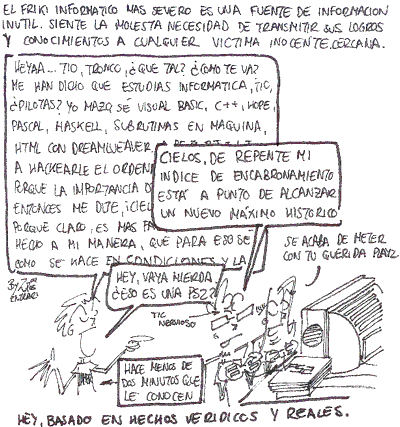 EL FRIKI INFORMATICO MAS SEVERO ES UNA FUENTE DE INFORMACION
INUTIL. SIENTE LA MOLESTA NECESIDAD DE TRANSMITIR SUS LOGROS
Y CONOCIMIENTOS A CUALQUIER VICTIMA INOCENTE CERCANA.
HEYAA... TIO, TRONCO, ¿QUE TAL? ¿COMO TE VA?
ME HAN DICHO QUE ESTUDIAS INFORMATICA, TIO,
¿PILOTAS? YO MAZO, SÉ VISUAL BASIC, C++, HOPE,
PASCAL, HASKELL, SUBRUTINAS EN MAQUINA,
HTML CON DREAMWEAVER,
A HACKEARLE EL ORDEN
PORQUE LA IMPORTANCIA D
ENTONCES ME DIJE, ¡CIEL
PORQUE CLARO, ES MAS FA
HECHO A MI MANERA, QUE PARA ESO SE
COMO SE HACE EN CONDICIONES Y LA
CIELOS, DE REPENTE MI
INDICE DE ENCABRONAMIENTO
ESTÁ A PUNTO DE ALCANZAR
UN NUEVO MÁXIMO HISTORICO
SE ACABA DE METER
CON TU QUERIDA PLAY2
HEY, VAYA MIERDA
¿ESO ES UNA PS2?
TIC
NERVIOSO
HACE MENOS DE
DOS MINUTOS QUE
LE CONOCEN
HEY, BASADO EN HECHOS VERIDICOS Y REALES.